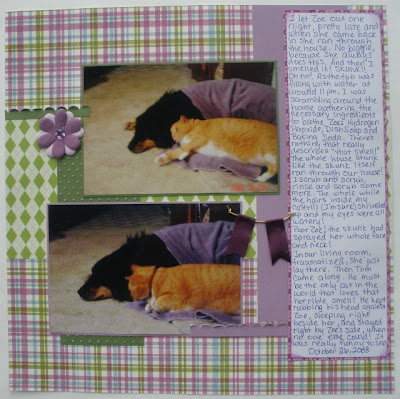 I let Zoe out one
night, pretty late and
when she came back
in she ran through
the house. No biggie,
because she always
does this. And then I
smelled it! Skunk!!
Oh no! As the tub was
filling with water at
around 11 pm, I was
scrambling around the
house gathering the
necessary ingredients
to bathe Zoe: Hydrogen
Peroxide, Dish Soap and
Baking Soda. There's
nothing that really
describes "that smell!"
The whole house stunk
like the skunk itself
ran through our house!
I scrub and scrub,
rinse and scrub some
more. The whole while
the hairs inside my
nostrils (I'm sure) shriveled
up and my eyes were all
watery!
Poor Zoe! The skunk had
sprayed her whole face
and neck!
In our living room,
traumatized, she just
lay there. Then Tom
came along. He must
be the only cat in the
world that loves that
horrible smell! He kept
rubbing his head against
Zoe, sleeping right
beside her, and stayed
right by Zoe's side, when
no one else could! It
was really funny to see.
October 26, 2003